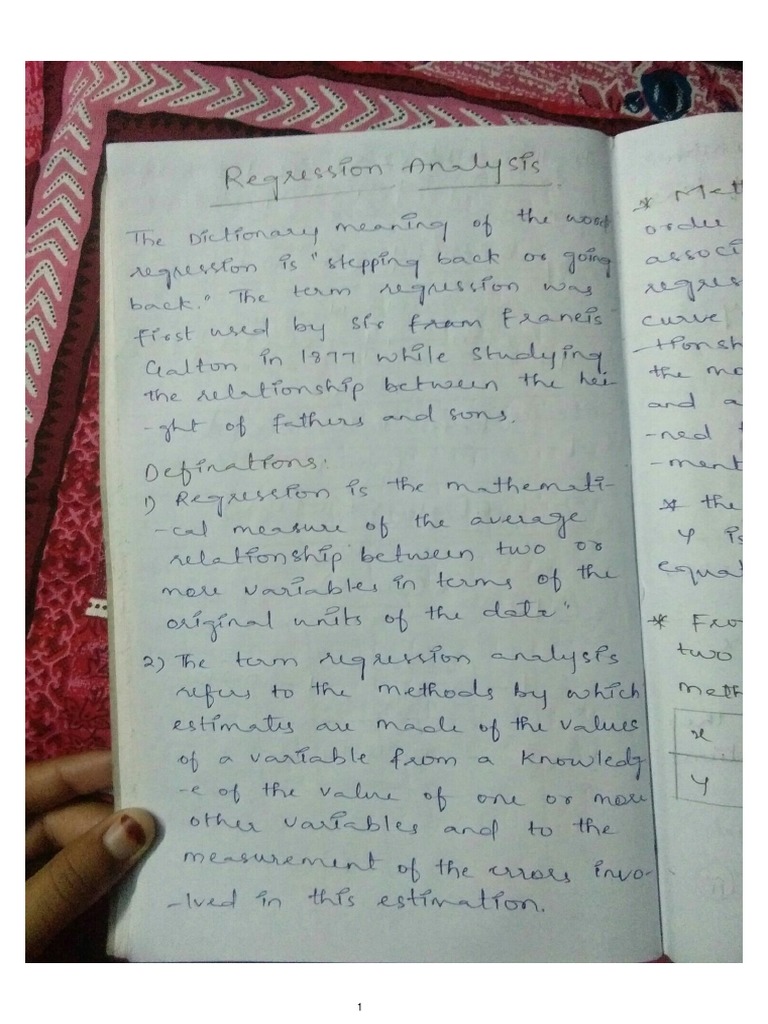 Regression Analysis
The Dictionary meaning of the word
regression is "stepping back or going
back." The term regression was
first used by sir fram Francis
Galton in 1877 while studying
the relationship between the hei-
-ght of fathers and sons.
Definations:
1) Regression is the mathemati-
-cal measure of the average
relationship between two or
more variables in terms of the
original units of the data"
2) The term regression analysis
refers to the methods by which
estimates are made of the values
of a variable from a knowledg
-e of the value of one or more
other variables and to the
measurement of the errors invo-
-lved in this estimation.
* Met
order
associ
regres
curve
-tionsh
the mo
and a
-ned
-ment
* the
y is
equat
* Fro
two
meth
x
y
1